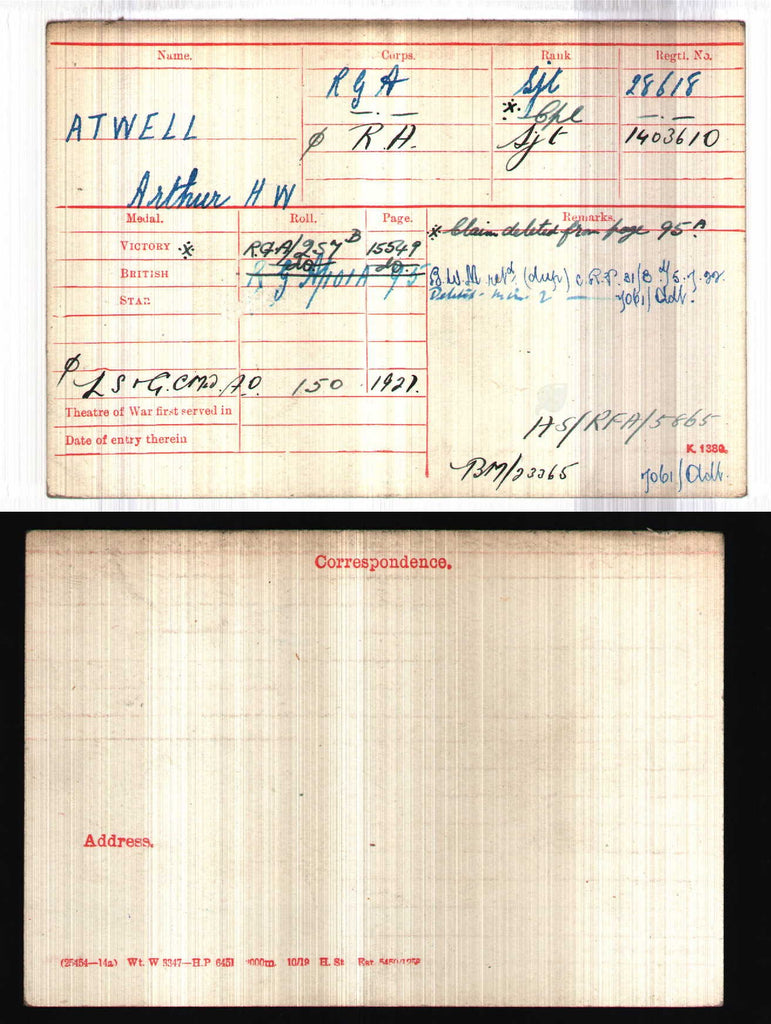 Name. Corps. Rank Regtl. No.
R G A Sjt 28618
ATWELL * Cpl —.—
φ R.A. Sjt 1403610
Arthur H W
Medal. Roll. Page. Remarks.
* Claim deleted from page 95 A
VICTORY * RGA/257 B 15549
BRITISH do do
R G A/101A 95
B.W.M retd (dup) C.R.P. 31/8 5.7.22
STAR 7061/Adt.
φ L S & G.C. Md. A.O. 150 1927.
Theatre of War first served in
Date of entry therein
HS/RFA/5865
K. 1380.
BM/23365 7061/Adt.
Correspondence.
Address.
(25454—14a) Wt. W 3347—H.P 6451 10/19 H. St